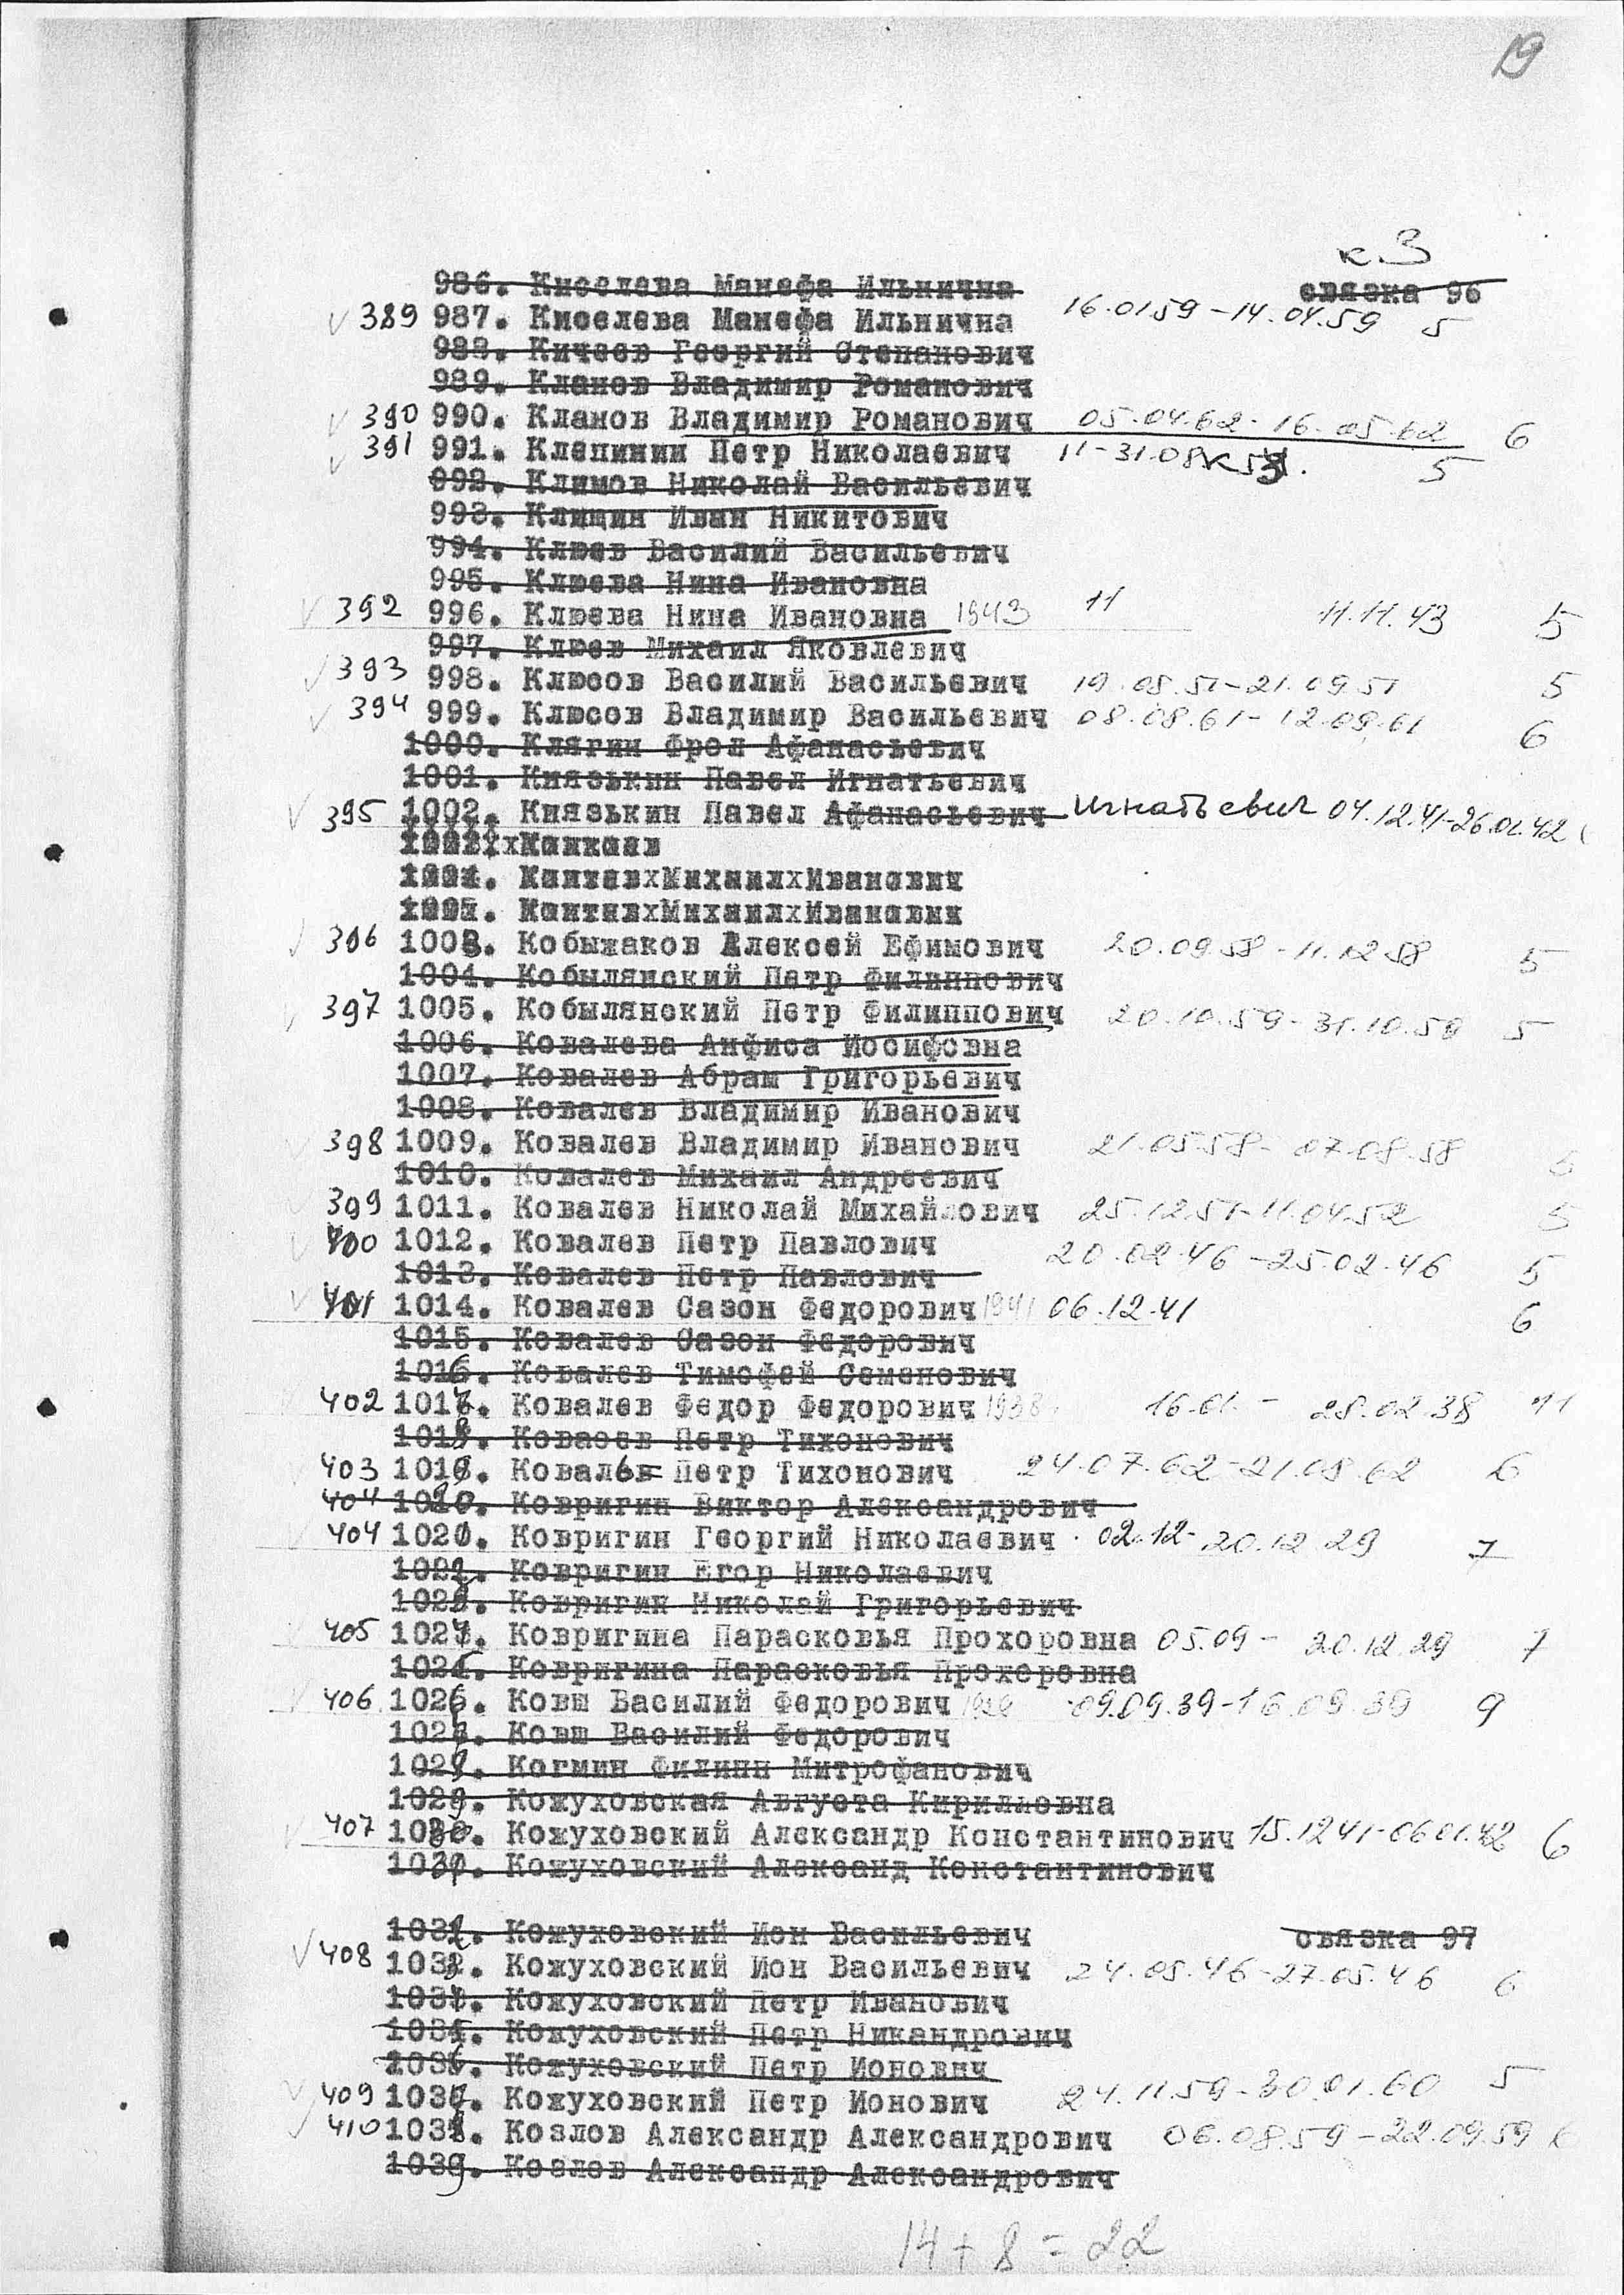 19
к.3
986. Киселева Манефа Ильинична связка 96
389 987. Киселева Манефа Ильинична 16.01.59-14.04.59 5
988. Кичеев Георгий Степанович
989. Кланов Владимир Романович
390 990. Кланов Владимир Романович 05.04.62-16.05.62 6
391 991. Клепинин Петр Николаевич 11-31.08 5
992. Климов Николай Васильевич
993. Клицин Иван Никитович
994. Клюев Василий Васильевич
995. Клюева Нина Ивановна
392 996. Клюева Нина Ивановна 1943 11 11.11.43 5
997. Клюев Михаил Яковлевич
393 998. Клюсов Василий Васильевич 19.08.51-21.09.51 5
394 999. Клюсов Владимир Васильевич 08.08.61-12.09.61 6
1000. Клягин Фрол Афанасьевич
1001. Князькин Павел Игнатьевич
395 1002. Князькин Павел Афанасьевич Игнатьевич 04.12.41-26.01.42
396 1003. Кобыжаков Алексей Ефимович 20.09.58-11.12.58 5
1004. Кобылянский Петр Филиппович
397 1005. Кобылянский Петр Филиппович 20.10.59-31.10.59 5
1006. Ковалева Анфиса Иосифовна
1007. Ковалев Абрам Григорьевич
1008. Ковалев Владимир Иванович
398 1009. Ковалев Владимир Иванович 21.05.58-07.08.58 5
1010. Ковалев Михаил Андреевич
399 1011. Ковалев Николай Михайлович 25.12.51-11.04.52 5
400 1012. Ковалев Петр Павлович 20.02.46-25.02.46 5
1013. Ковалев Петр Павлович
401 1014. Ковалев Сазон Федорович 1941 06.12.41 6
1015. Ковалев Сазон Федорович
1016. Ковалев Тимофей Семенович
402 1017. Ковалев Федор Федорович 1938 16.01.- 28.02.38 11
1018. Коваоев Петр Тихонович
403 1019. Коваль Петр Тихонович 24.07.62-21.08.62 6
404 1020. Ковригин Виктор Александрович
404 1021. Ковригин Георгий Николаевич 02.12- 20.12.29 7
1022. Ковригин Егор Николаевич
1023. Ковригин Николай Григорьевич
405 1024. Ковригина Парасковья Прохоровна 05.09- 20.12.29 7
1025. Ковригина Парасковья Прохоровна
406 1026. Ковш Василий Федорович 09.09.39-16.09.39 9
1027. Ковш Василий Федорович
1028. Когмин Филипп Митрофанович
1029. Кожуховская Августа Кирильевна
407 1030. Кожуховский Александр Константинович 15.12.41-06.01.42 6
1031. Кожуховский Александ Константинович
1032. Кожуховский Ион Васильевич связка 97
408 1033. Кожуховский Ион Васильевич 24.05.46-27.05.46 6
1034. Кожуховский Петр Иванович
1035. Кожуховский Петр Никандрович
1036. Кожуховский Петр Ионович
409 1037. Кожуховский Петр Ионович 24.11.59-30.01.60 5
410 1038. Козлов Александр Александрович 06.08.59-22.09.59
1039. Козлов Александр Александрович
14+8=22